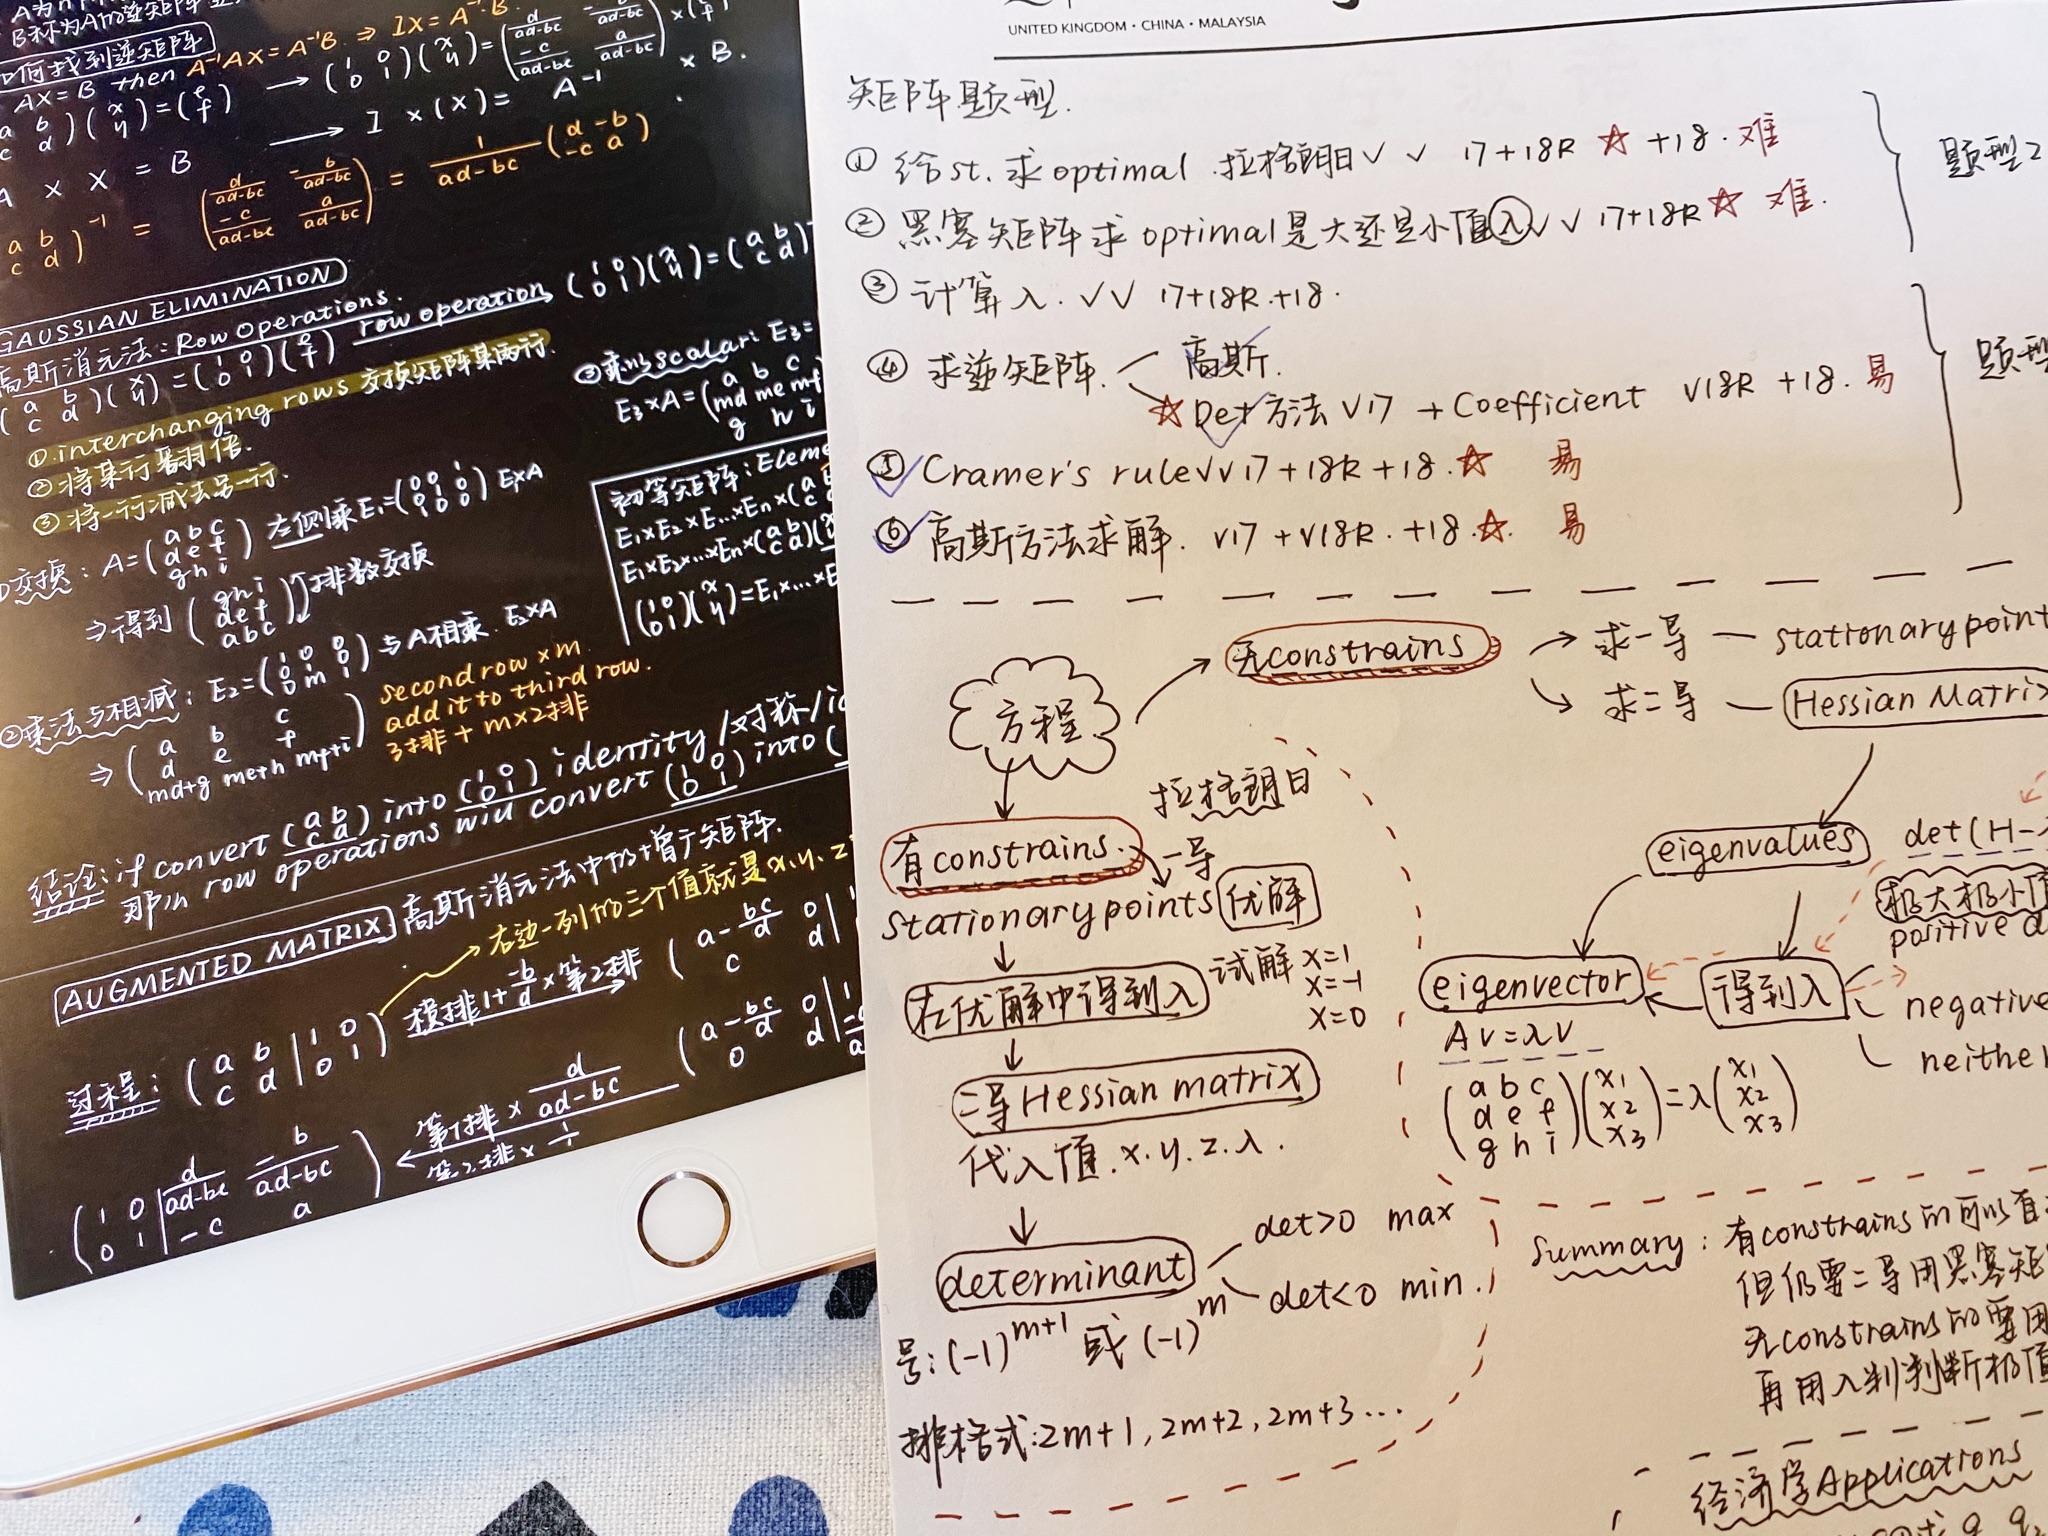 B称为A的逆矩阵
如何找到逆矩阵
AX=B then A⁻¹AX=A⁻¹B ⇒ IX=A⁻¹·B
(a b c d)(x y)=(e f) → (1 0 0 1)(x y)=(d/ad-bc -b/ad-bc -c/ad-bc a/ad-bc)×(e f)
A × X = B → I × (X) = A⁻¹ × B.
(a b c d)⁻¹ = (d/ad-bc -b/ad-bc -c/ad-bc a/ad-bc) = 1/ad-bc (d -b -c a)
GAUSSIAN ELIMINATION
高斯消元法: Row Operations.
(a b c d)(x y)=(1 0 0 1)(e f) row operation (1 0 0 1)(x y)=(a b c d)
①interchanging rows 交换矩阵某两行.
②将某行翻倍.
③将一行减去另一行.
①交换: A=(a b c d e f g h i) 左侧乘 E₁=(0 0 1 0 1 0 1 0 0) E₁×A
⇒得到(g h i d e f a b c)排数交换
②乘法与相减: E₂=(1 0 0 0 1 0 0 m 1)与A相乘. E₂×A
⇒(a b c d e f md+g me+h mf+i)
second row × m
add it to third row.
3排+m×2排
③乘以scalar: E₃=
E₃×A=(a b c md me mf g h i
初等矩阵: Eleme
E₁×E₂×E...×En×(a c
E₁×E₂×...×En×(a b c d)(
(1 0 0 1)(x y)=E₁×...×E
结论: if convert (a b c d) into (1 0 0 1) identity/对称/id
那么 row operations will convert (1 0 0 1) into (
AUGMENTED MATRIX 高斯消元法中的增广矩阵.
右边一列的三个值就是x.y.z
过程: (a b c d | 1 0 0 1) 横排1+-b/d×第2排 (a-bc/d 0 c d | 1
(1 0 0 1 | d/ad-bc -b/ad-bc -c a) 第1排×d/ad-bc (a-bc/d 0 0 d | 1
第2排×1/
UNITED KINGDOM · CHINA · MALAYSIA
矩阵题型.
① 给st. 求optimal 拉格朗日✓ ✓ 17+18R ☆ +18. 难
② 黑塞矩阵求optimal是大还是小值λ✓✓ 17+18R☆ 难.
题型2
③ 计算λ. ✓✓ 17+18R.+18.
④ 求逆矩阵. 高斯.
☆Det方法 ✓17 + Coefficient ✓18R +18. 易
⑤ Cramer's rule✓✓17+18R+18.☆ 易
⑥ 高斯方法求解. ✓17+✓18R.+18.☆. 易
题型
方程
无constrains
求一导 — stationary point
求二导 — Hessian Matrix
有constrains.
拉格朗日
一导
stationary points 优解
在优解中得到λ
试解 x=1
x=-1
x=0
二导Hessian matrix
代入值.x.y.z.λ.
determinant
det>0 max
det<0 min.
号: (-1)^m+1 或 (-1)^m
排格式: 2m+1, 2m+2, 2m+3...
eigenvalues
det(H-
极大极小值
positive d
eigenvector
得到λ
negative
neither
Av=λv
(a b c d e f g h i)(x₁ x₂ x₃)=λ(x₁ x₂ x₃)
summary: 有constrains的可以直
但仍需二导用黑塞矩
无constrains的需用
再用λ判判断极值
经济学Applications